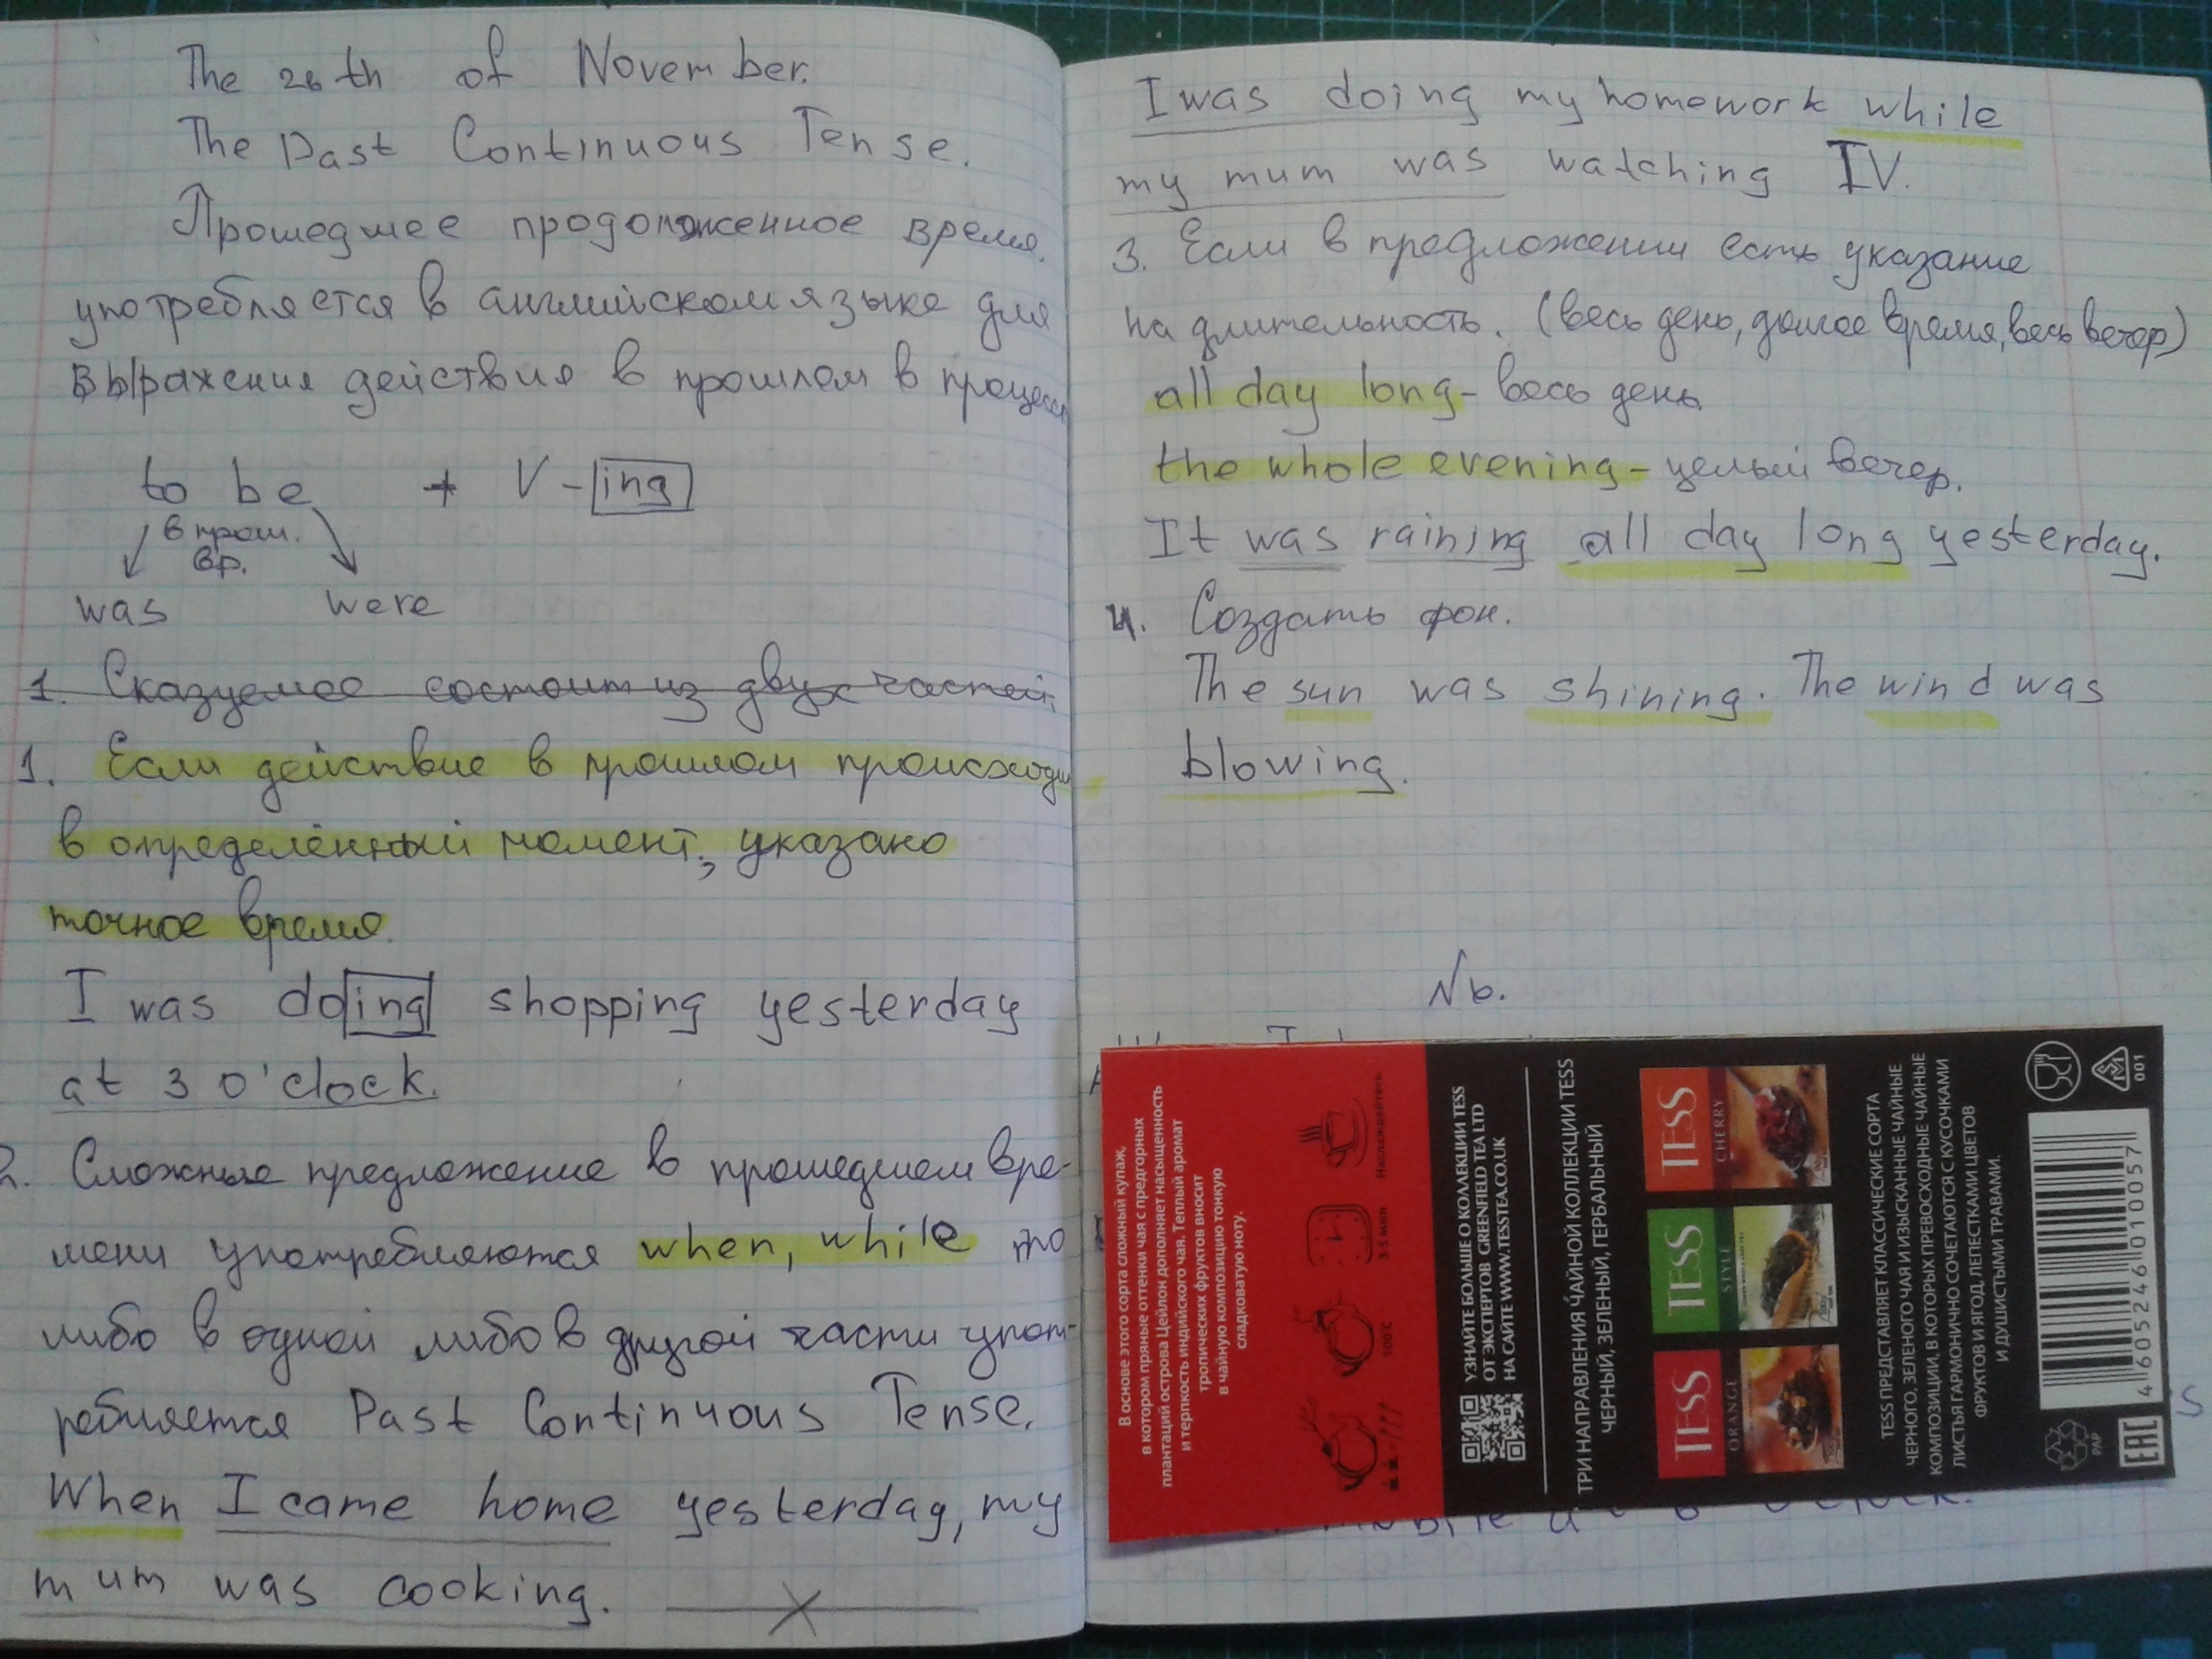 The 26th of November.
The Past Continuous Tense.
Прошедшее продолженное время,
употребляется в английском языке для
выражения действия в прошлом в процессе
to be + V-ing
в прош.
вр.
was were
1. Сказуемое состоит из двух частей.
1. Если действие в прошлом происходи
в определённый момент, указано
точное время.
I was doing shopping yesterday
at 3 o'clock.
2. Сложные предложение в прошедшем вре-
мени употребляются when, while то
либо в одной либо в другой части упот-
ребляется Past Continuous Tense.
When I came home yesterday, my
mum was cooking.
I was doing my homework while
my mum was watching TV.
3. Если в предложении есть указание
на длительность. (весь день, долгое время, весь вечер)
all day long - весь день.
the whole evening - целый вечер.
It was raining all day long yesterday.
4. Создать фон.
The sun was shining. The wind was
blowing.
№.
В основе этого сорта сложный купаж,
в котором пряные оттенки чая с предгорных
плантаций острова Цейлон дополняет насыщенность
и терпкость индийского чая. Теплый аромат
тропических фруктов вносит
в чайную композицию тонкую
сладковатую ноту.
100°C
3-5 мин
Наслаждайтесь
УЗНАЙТЕ БОЛЬШЕ О КОЛЛЕКЦИИ TESS
ОТ ЭКСПЕРТОВ GREENFIELD TEA LTD
НА САЙТЕ WWW.TESSTEA.CO.UK
ТРИ НАПРАВЛЕНИЯ ЧАЙНОЙ КОЛЛЕКЦИИ TESS
ЧЕРНЫЙ, ЗЕЛЕНЫЙ, ГЕРБАЛЬНЫЙ
TESS
ORANGE
TESS
STYLE
TESS
CHERRY
TESS ПРЕДСТАВЛЯЕТ КЛАССИЧЕСКИЕ СОРТА
ЧЕРНОГО, ЗЕЛЕНОГО ЧАЯ И ИЗЫСКАННЫЕ ЧАЙНЫЕ
КОМПОЗИЦИИ, В КОТОРЫХ ПРЕВОСХОДНЫЕ ЧАЙНЫЕ
ЛИСТЬЯ ГАРМОНИЧНО СОЧЕТАЮТСЯ С КУСОЧКАМИ
ФРУКТОВ И ЯГОД, ЛЕПЕСТКАМИ ЦВЕТОВ
И ДУШИСТЫМИ ТРАВАМИ.
PAP
EAC
4 605246 010057
001